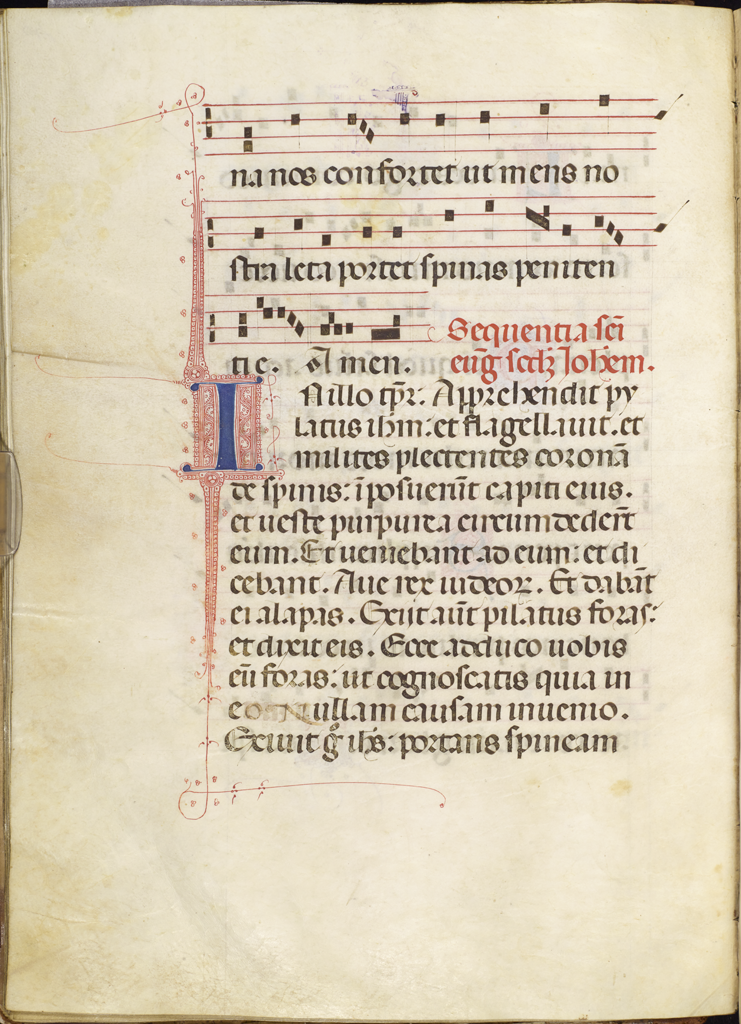 na nos confortet ut mens no
stra leta portet spinas peniten
tie. Amen.
Sequentia sc̄i
eūg scdȝ Joh̄em.
In illo tp̄r: Apprehendit py
latus ih̄m: et flagellauit. et
milites plectentes coronā
de spinis: īposuer̄ut capiti eius.
et ueste purpurea circumdeder̄t
eum. Et ueniebant ad eum: et di
cebant. Aue rex iudeoꝝ. Et dabāt
ei alapas. Exiit aūt pilatus foras:
et dixit eis. Ecce adduco uobis
eū foras: ut cognoscatis quia in
eo nullam causam inuenio.
Exiuit g̊ ih̄s: portans spineam